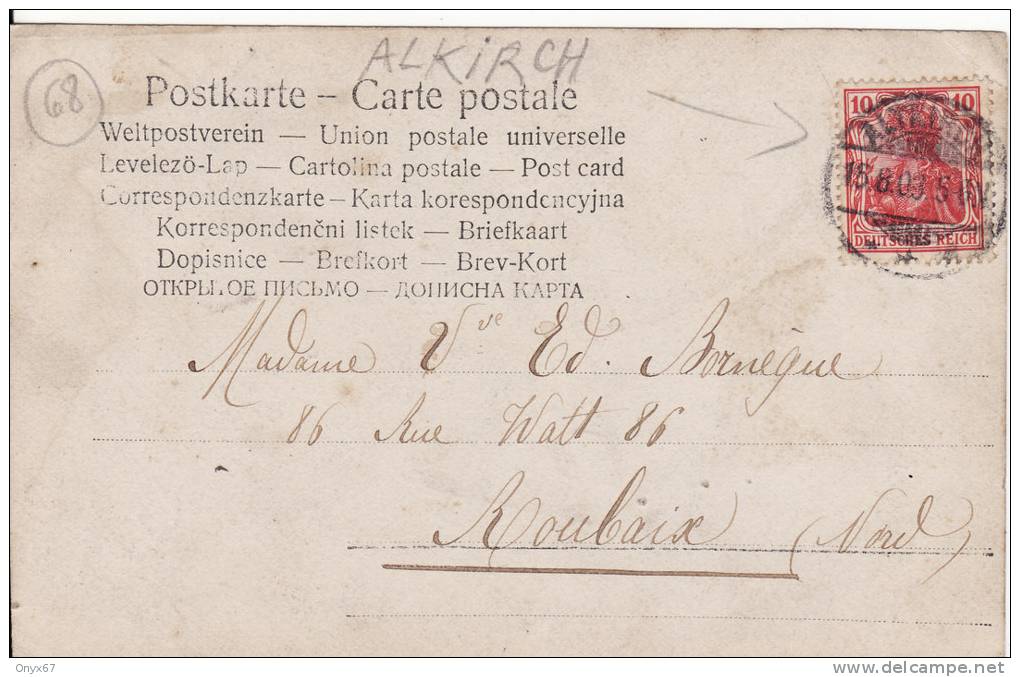 ALKIRCH
68
Postkarte – Carte postale
Weltpostverein — Union postale universelle
Levelezö-Lap — Cartolina postale — Post card
Correspondenzkarte – Karta korespondencyjna
Korrespondenčni listek — Briefkaart
Dopisnice — Brefkort — Brev-Kort
ОТКРЫТОЕ ПИСЬМО — ДОПИСНА КАРТА
10 10
DEUTSCHES REICH
Madame Vve Ed. Bornègue
86 Rue Watt 86
Roubaix (Nord)
Onyx67
delcampe.net